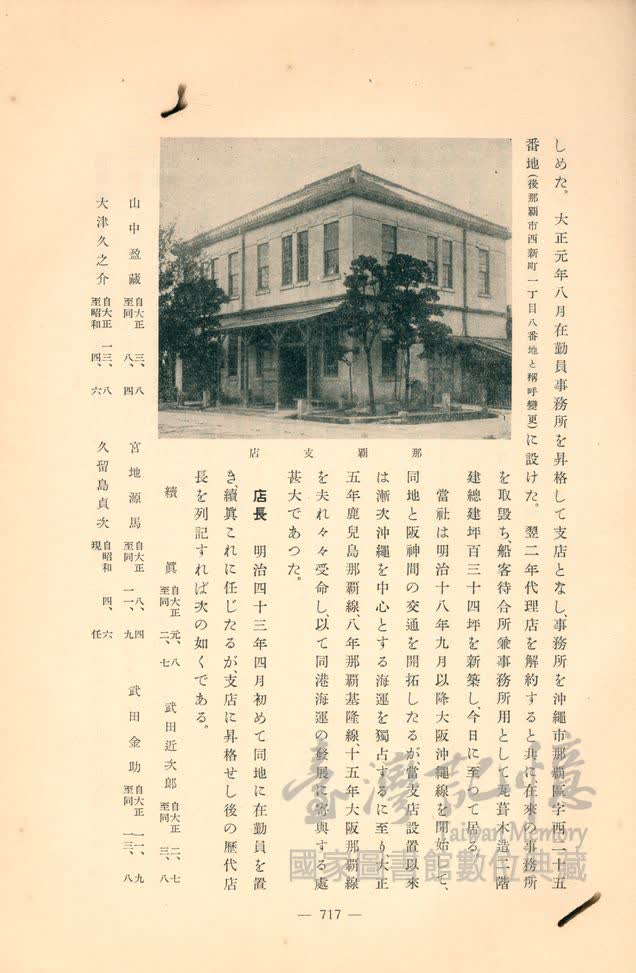 しめた。　大正元年八月在勤員事務所を昇格して支店となし、事務所を沖繩市那覇區字西二十五
番地(後那覇市西新町一丁目八番地と稱呼變更)に設けた。　翌二年代理店を解約すると共に、在來の事務所
を取毀ち、船客待合所兼事務所用として瓦葺木造二階
建總建坪百三十四坪を新築し、今日に至つて居る。
當社は明治十八年九月以降大阪沖繩線を開始して、
同地と阪神間の交通を開拓したるが、當支店設置以來
は漸次沖繩を中心とする海運を獨占するに至り大正
五年鹿兒島那覇線、八年那覇基隆線、十五年大阪那覇線
を夫れ々々受命し、以て同港海運の發展に寄與する處
甚大であつた。
那覇支店
店長　明治四十三年四月初めて同地に在勤員を置
き、續眞これに任じたるが、支店に昇格せし後の歴代店
長を列記すれば次の如くである。
續眞　自大正元、八　至同二、七
武田近次郎　自大正二、七　至同三、八
山中盈藏　自大正三、八　至同八、四
宮地源馬　自大正八、四　至同一一、九
武田金助　自大正一一、九　至同一三、八
大津久之介　自大正一三、八　至昭和四、六
久留島貞次　自昭和四、六　現任
— 717 —
臺灣記憶
Taiwan Memory
國家圖書館數位典藏